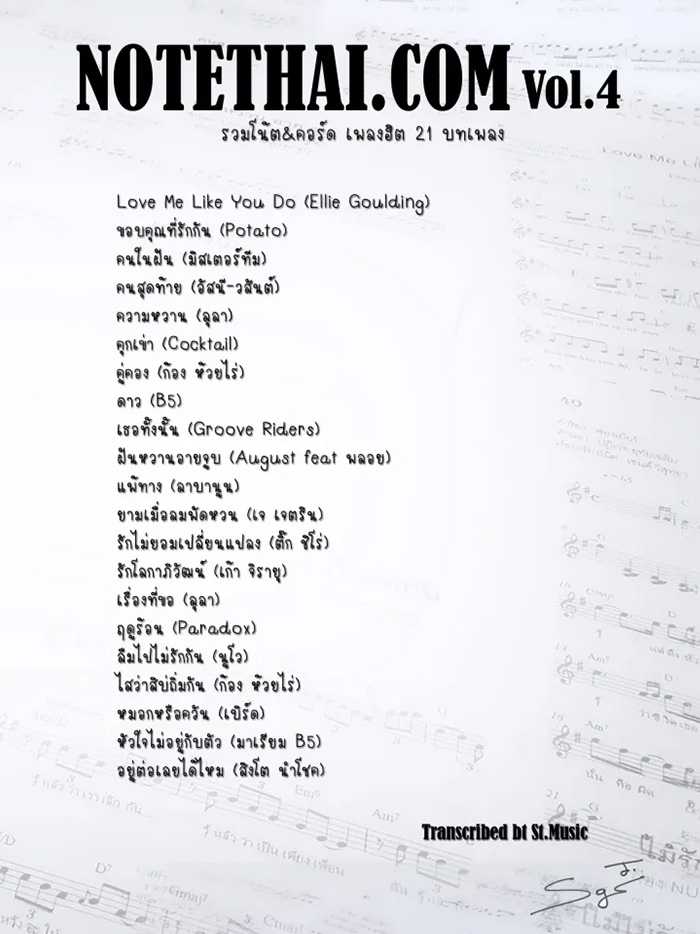 NOTETHAI.COM Vol.4
รวมโน๊ต&คอร์ด เพลงฮิต 21 บทเพลง
Love Me Like You Do (Ellie Goulding)
ขอบคุณที่รักกัน (Potato)
คนในฝัน (มิสเตอร์ทีม)
คนสุดท้าย (อัสนี-วสันต์)
ความหวาน (ลุลา)
คุกเข่า (Cocktail)
คู่คอง (ก้อง ห้วยไร่)
ดาว (B5)
เธอทั้งนั้น (Groove Riders)
ฝันหวานอายจูบ (August feat พลอย)
แพ้ทาง (ลาบานูน)
ยามเมื่อลมพัดหวน (เจ เจตริน)
รักไม่ยอมเปลี่ยนแปลง (ติ๊ก ชิโร่)
รักโลกาภิวัฒน์ (เก้า จิรายุ)
เรื่องที่ขอ (ลุลา)
ฤดูร้อน (Paradox)
ลืมไปไม่รักกัน (นูโว)
ไสว่าสิบ่ถิ่มกัน (ก้อง ห้วยไร่)
หมอกหรือควัน (เบิร์ด)
หัวใจไม่อยู่กับตัว (มาเรียม B5)
อยู่ต่อเลยได้ไหม (สิงโต นำโชค)
Transcribed bt St.Music